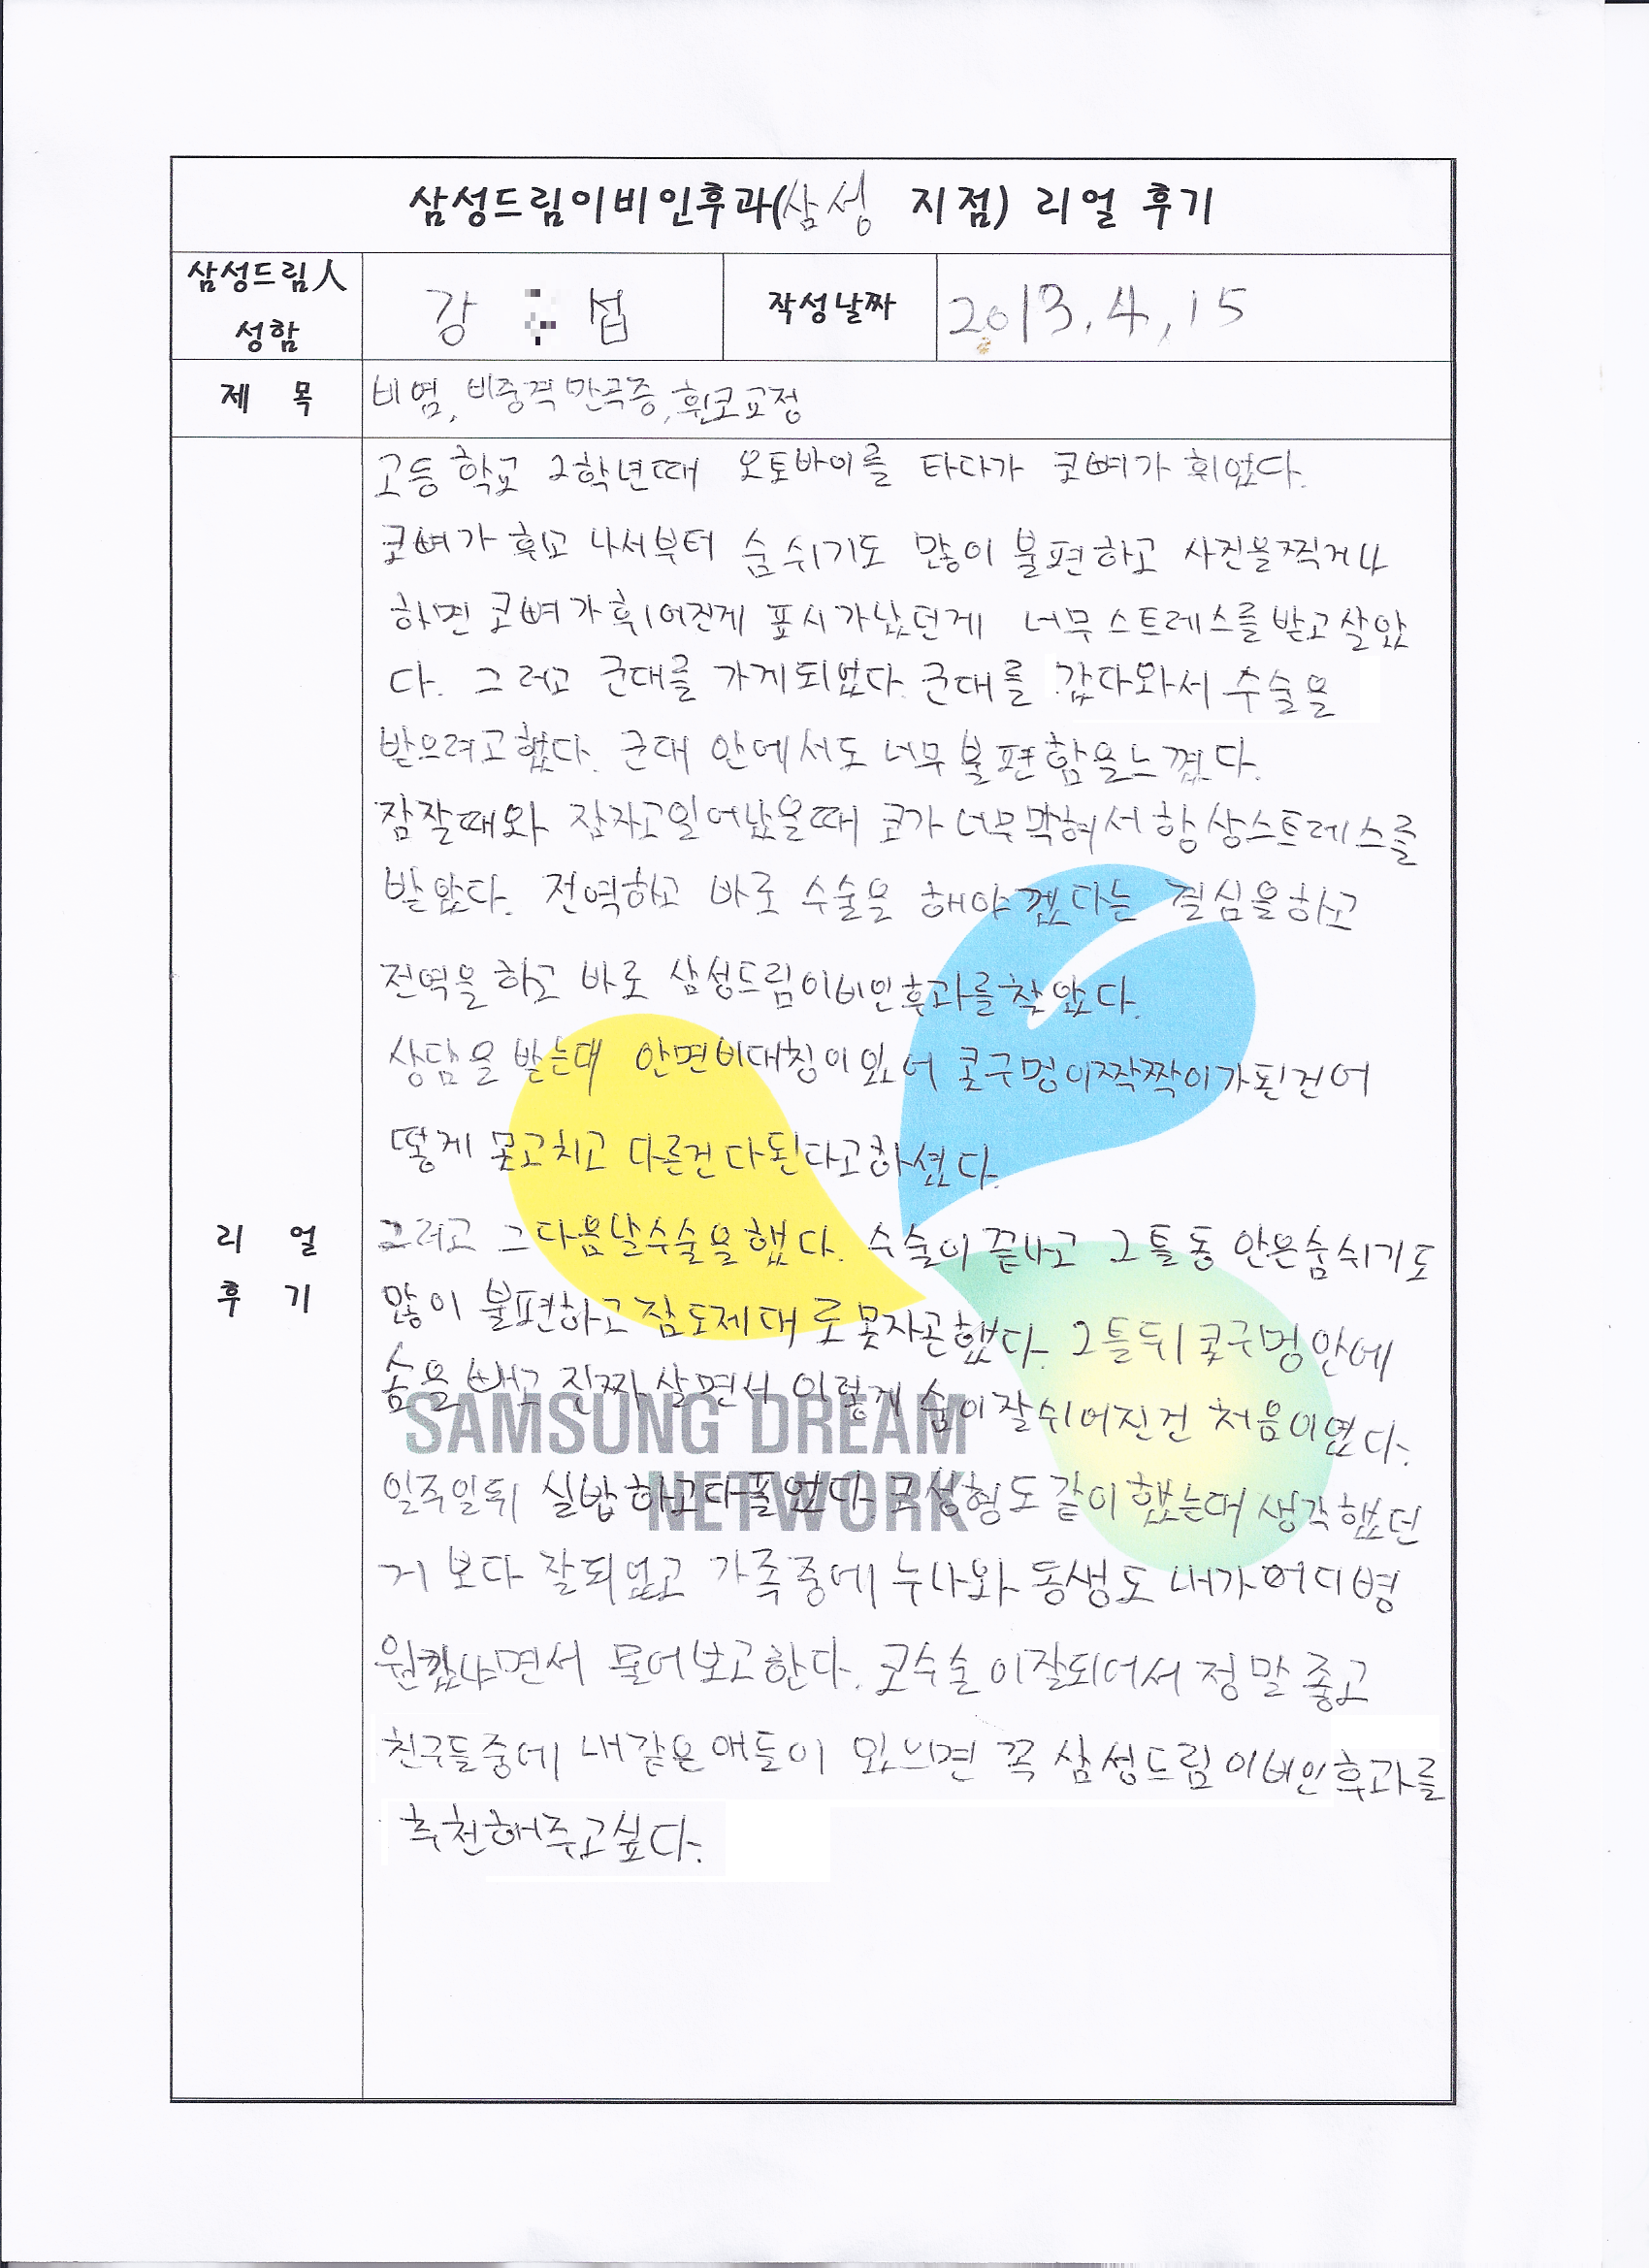 삼성드림이비인후과(삼성 지점) 리얼 후기
삼성드림人 성함
강 섭
작성날짜
2013.4.15
제 목
비염, 비중격만곡증, 휜코교정
고등학교 2학년때 오토바이를 타다가 코뼈가 휘었다.
코뼈가 휘고 나서부터 숨쉬기도 많이 불편하고 사진을찍거나
하면 코뼈가휘어진게 표시가났던게 너무스트레스를받고살았
다. 그러고 군대를 가게되었다. 군대를 갔다와서 수술을
받으려고했다. 군대 안에서도 너무불편함을느꼈다.
잠잘때와 잠자고일어났을때 코가 너무막혀서항상스트레스를
받았다. 전역하고 바로 수술을 해야겠다는 결심을하고
전역을하고 바로 삼성드림이비인후과를찾았다.
상담을 받는대 안면비대칭이있어 콧구멍이짝짝이가된건어
떻게 못고치고 다른건다된다고하셨다.
그러고 그다음날수술을했다. 수술이 끝나고 그틀동안은숨쉬기도
많이 불편하고잠도제대로못자곤했다. 2틀뒤 콧구멍안에
솜을빼고 진짜살면서 이렇게 숨이잘쉬어진건 처음이였다.
일주일뒤 실밥하고다풀었다. 코성형도같이했는대 생각했던
거보다 잘되었고 가족중에 누나와 동생도 내가어디병
원갔냐면서 물어보고한다. 코수술이잘되어서 정말좋고
친구들중에 내같은애들이 있으면 꼭 삼성드림이비인후과를
추천해주고싶다.
리 얼
후 기
SAMSUNG DREAM
NETWORK